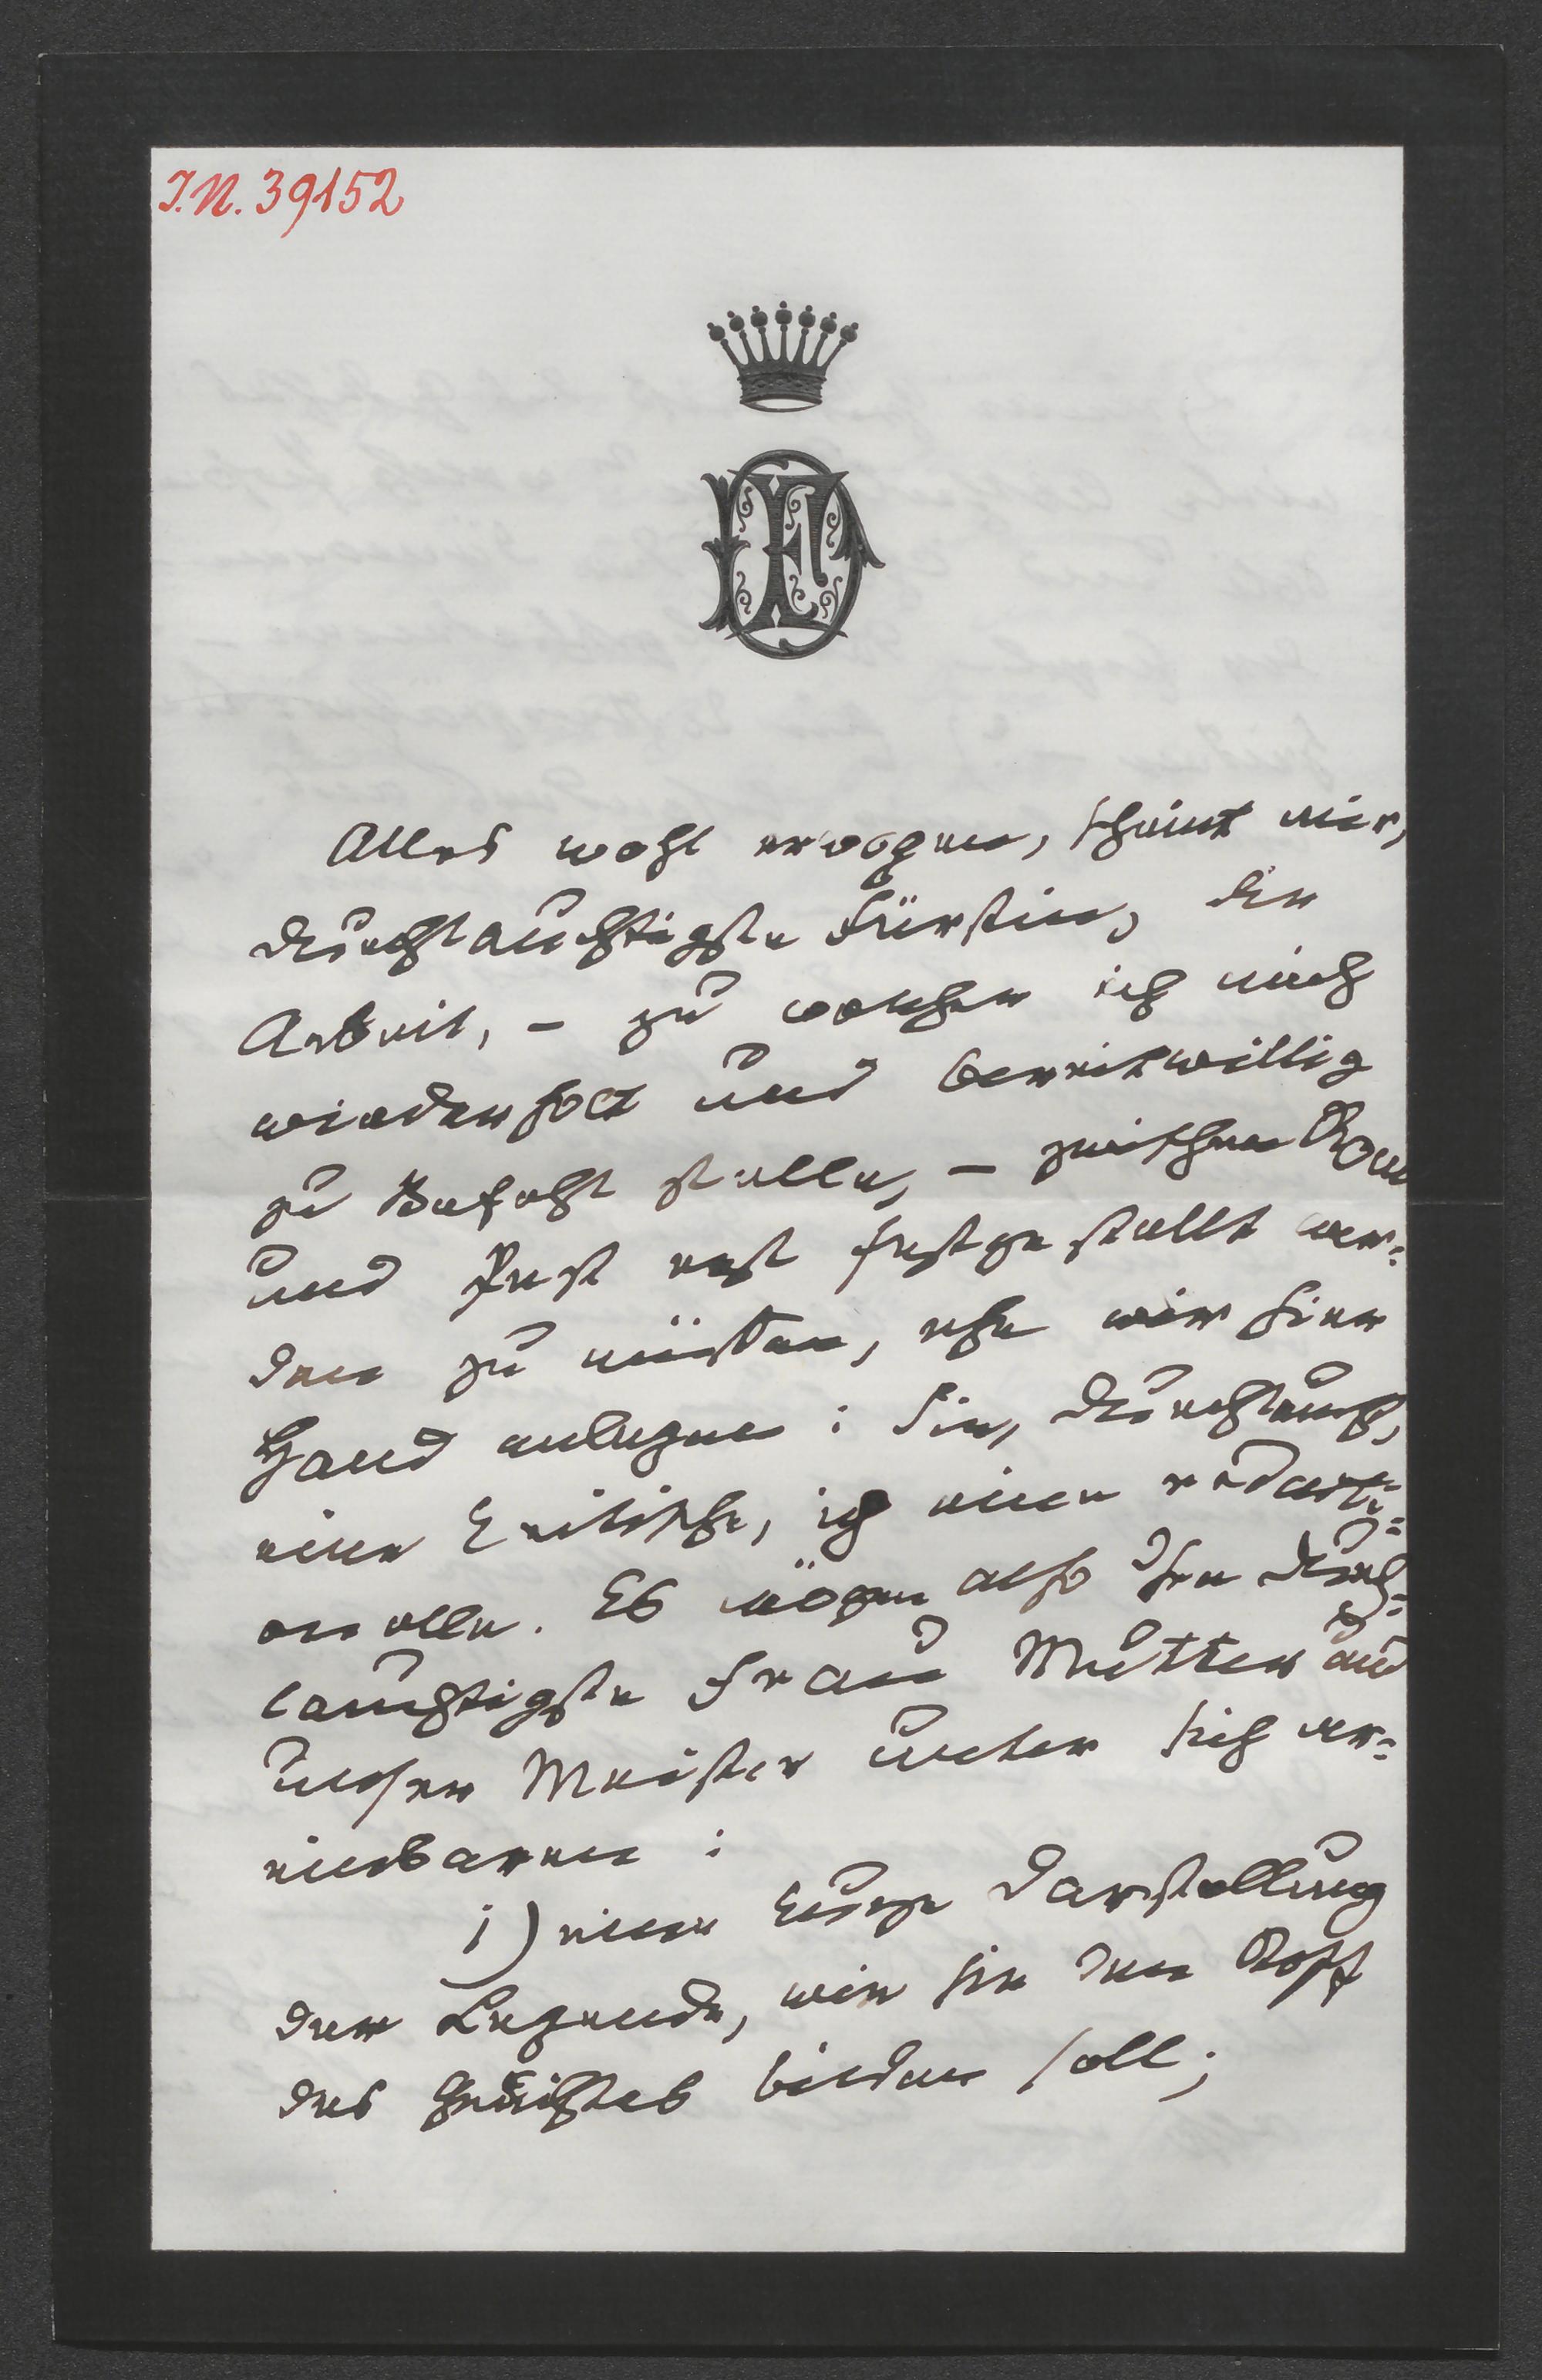 I.N. 39152
Alles wohl erwogen, scheint mir,
durchlauchtigste Fürstin, die
Arbeit, – zu welcher ich mich
wiederholt und bereitwillig
zu Befehl stelle, – zwischen Rom
und Pest erst festgestellt wer=
den zu müssen, ehe wir hier
Hand anlegen: Sie, Durchlaucht,
eine kritische, ich eine redacti=
onelle. Es mögen also Ihre durch=
lauchtigste Frau Mutter und
unser Meister unter sich ver=
einbaren:
1) eine kurze Darstellung
der Legende, wie sie den Stoff
des Gedichtes bilden soll;